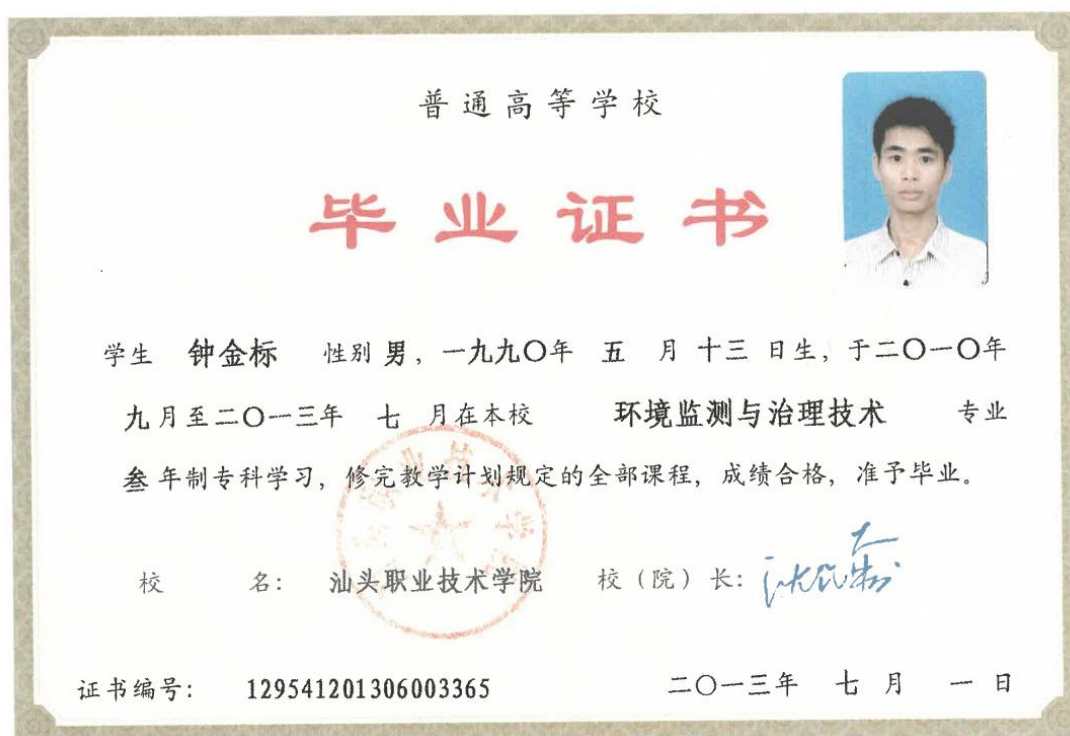 普通高等学校
毕业证书
学生 钟金标 性别 男，一九九〇年 五 月 十三 日生，于二〇一〇年
九月至二〇一三年 七 月在本校 环境监测与治理技术 专业
叁 年制专科学习，修完教学计划规定的全部课程，成绩合格，准予毕业。
校 名： 汕头职业技术学院 校（院）长：
证书编号： 129541201306003365 二〇一三年 七 月 一 日